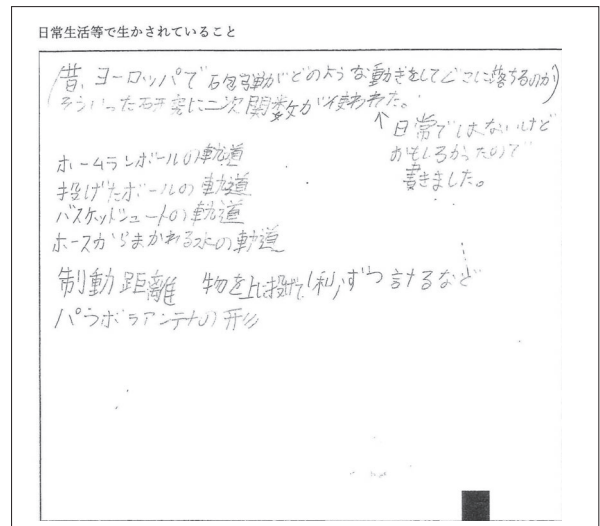 日常生活等で生かされていること
(昔、ヨーロッパで砲弾がどのような動きをしてどこに落ちるのか)
そういった研究に二次関数が使われた。
↑日常ではないけど
おもしろかったので
書きました。
ホームランボールの軌道
投げたボールの軌道
バスケットシュートの軌道
ホースからまかれる水の軌道
制動距離 物を上に投げて1秒ずつ計るなど
パラボラアンテナの形